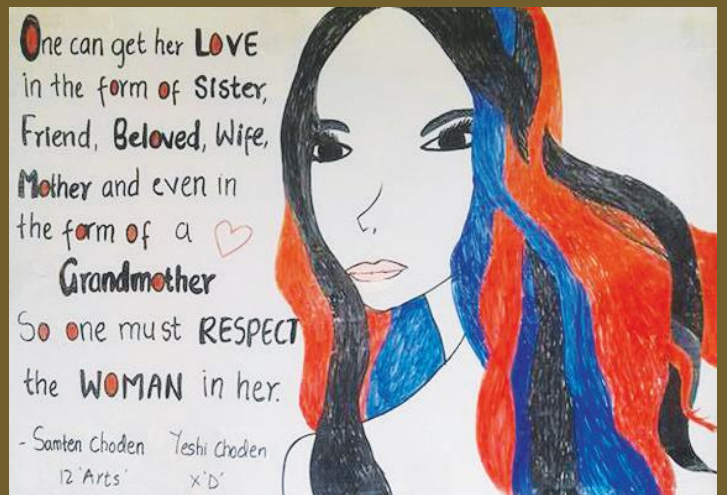 One can get her LOVE
in the form of Sister,
Friend, Beloved, Wife,
Mother and even in
the form of a
Grandmother
So one must RESPECT
the WOMAN in her.
- Samten Choden Yeshi Choden
12 'Arts' X 'D'